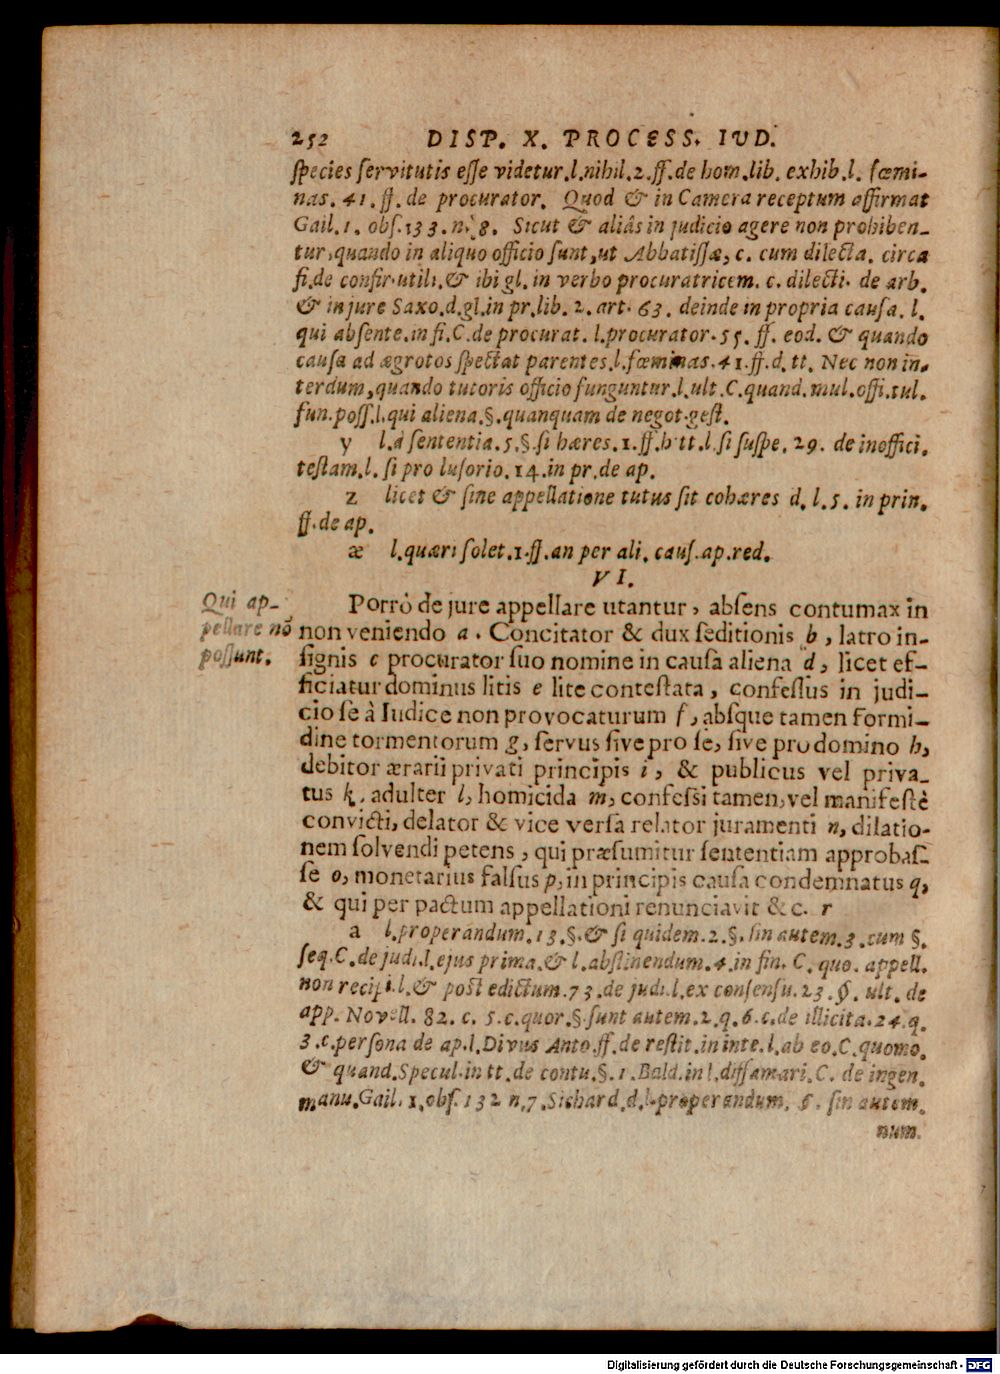 252 DISP. X. PROCESS. IUD.
species servitutis esse videtur.l.nihil.2.ff.de hom.lib. exhib.l. fœmi-
nas. 41. ff. de procurator. Quod & in Camera receptum affirmat
Gail. 1. obs. 133. n. 8. Sicut & aliâs in judicio agere non prohiben-
tur, quando in aliquo officio sunt, ut Abbatissæ, c. cum dilecta. circa
fi.de confir. utili. & ibi gl. in verbo procuratricem. c. dilecti. de arb.
& in jure Saxo.d.gl.in pr.lib. 2. art. 63. deinde in propria causa. l.
qui absente.in fi.C.de procurat. l.procurator. 55. ff. eod. & quando
causa ad ægrotos spectat parentes.l.fœminas. 41.ff.d. tt. Nec non in-
terdum, quando tutoris officio funguntur.l.ult. C.quand.mul.offi.tul.
fun.poss.l.qui aliena.§.quanquam de negot.gest.
y l.à sententia.5.§.si hæres.1.ff.h tt.l.si suspe. 29. de inoffici.
testam.l. si pro lusorio. 14.in pr.de ap.
z licet & sine appellatione tutus sit cohæres d. l. 5. in prin.
ff. de ap.
æ l.quæri solet.1.ff.an per ali. caus.ap.red.
VI.
Qui ap-
pellare nō
possunt.
Porrò de jure appellare utantur, absens contumax in
non veniendo a. Concitator & dux seditionis b, latro in-
signis c procurator suo nomine in causa aliena d, licet ef-
ficiatur dominus litis e lite contestata, confessus in judi-
cio se à Iudice non provocaturum f, absque tamen formi-
dine tormentorum g, servus sive pro se, sive pro domino h,
debitor ærarii privati principis i, & publicus vel priva-
tus k, adulter l, homicida m, confessi tamen, vel manifestè
convicti, delator & vice versa relator juramenti n, dilatio-
nem solvendi petens, qui præsumitur sententiam approbas-
se o, monetarius falsus p, in principis causa condemnatus q,
& qui per pactum appellationi renunciavit &c. r
a l.properandum. 13.§.& si quidem. 2.§. sin autem. 3. cum §.
seq.C.de judi.l.ejus prima.& l.abstinendum. 4.in fin. C. quo. appell.
non recipi.l.& post edictum. 73. de judi.l.ex consensu. 23. §. ult. de
app. Novell. 82. c. 5.c.quor.§.sunt autem. 2. q. 6. c. de illicita. 24. q.
3.c.persona de ap.l.Divus Anto.ff.de restit.in inte.l.ab eo.C.quomo.
& quand.Specul.in tt.de contu.§. 1. Bald.in l.diffamari.C. de ingen.
manu.Gail. 1. obs. 132 n. 7. Sichard.d.l.properandum. §. sin autem.
num.
Digitalisierung gefördert durch die Deutsche Forschungsgemeinschaft - DFG